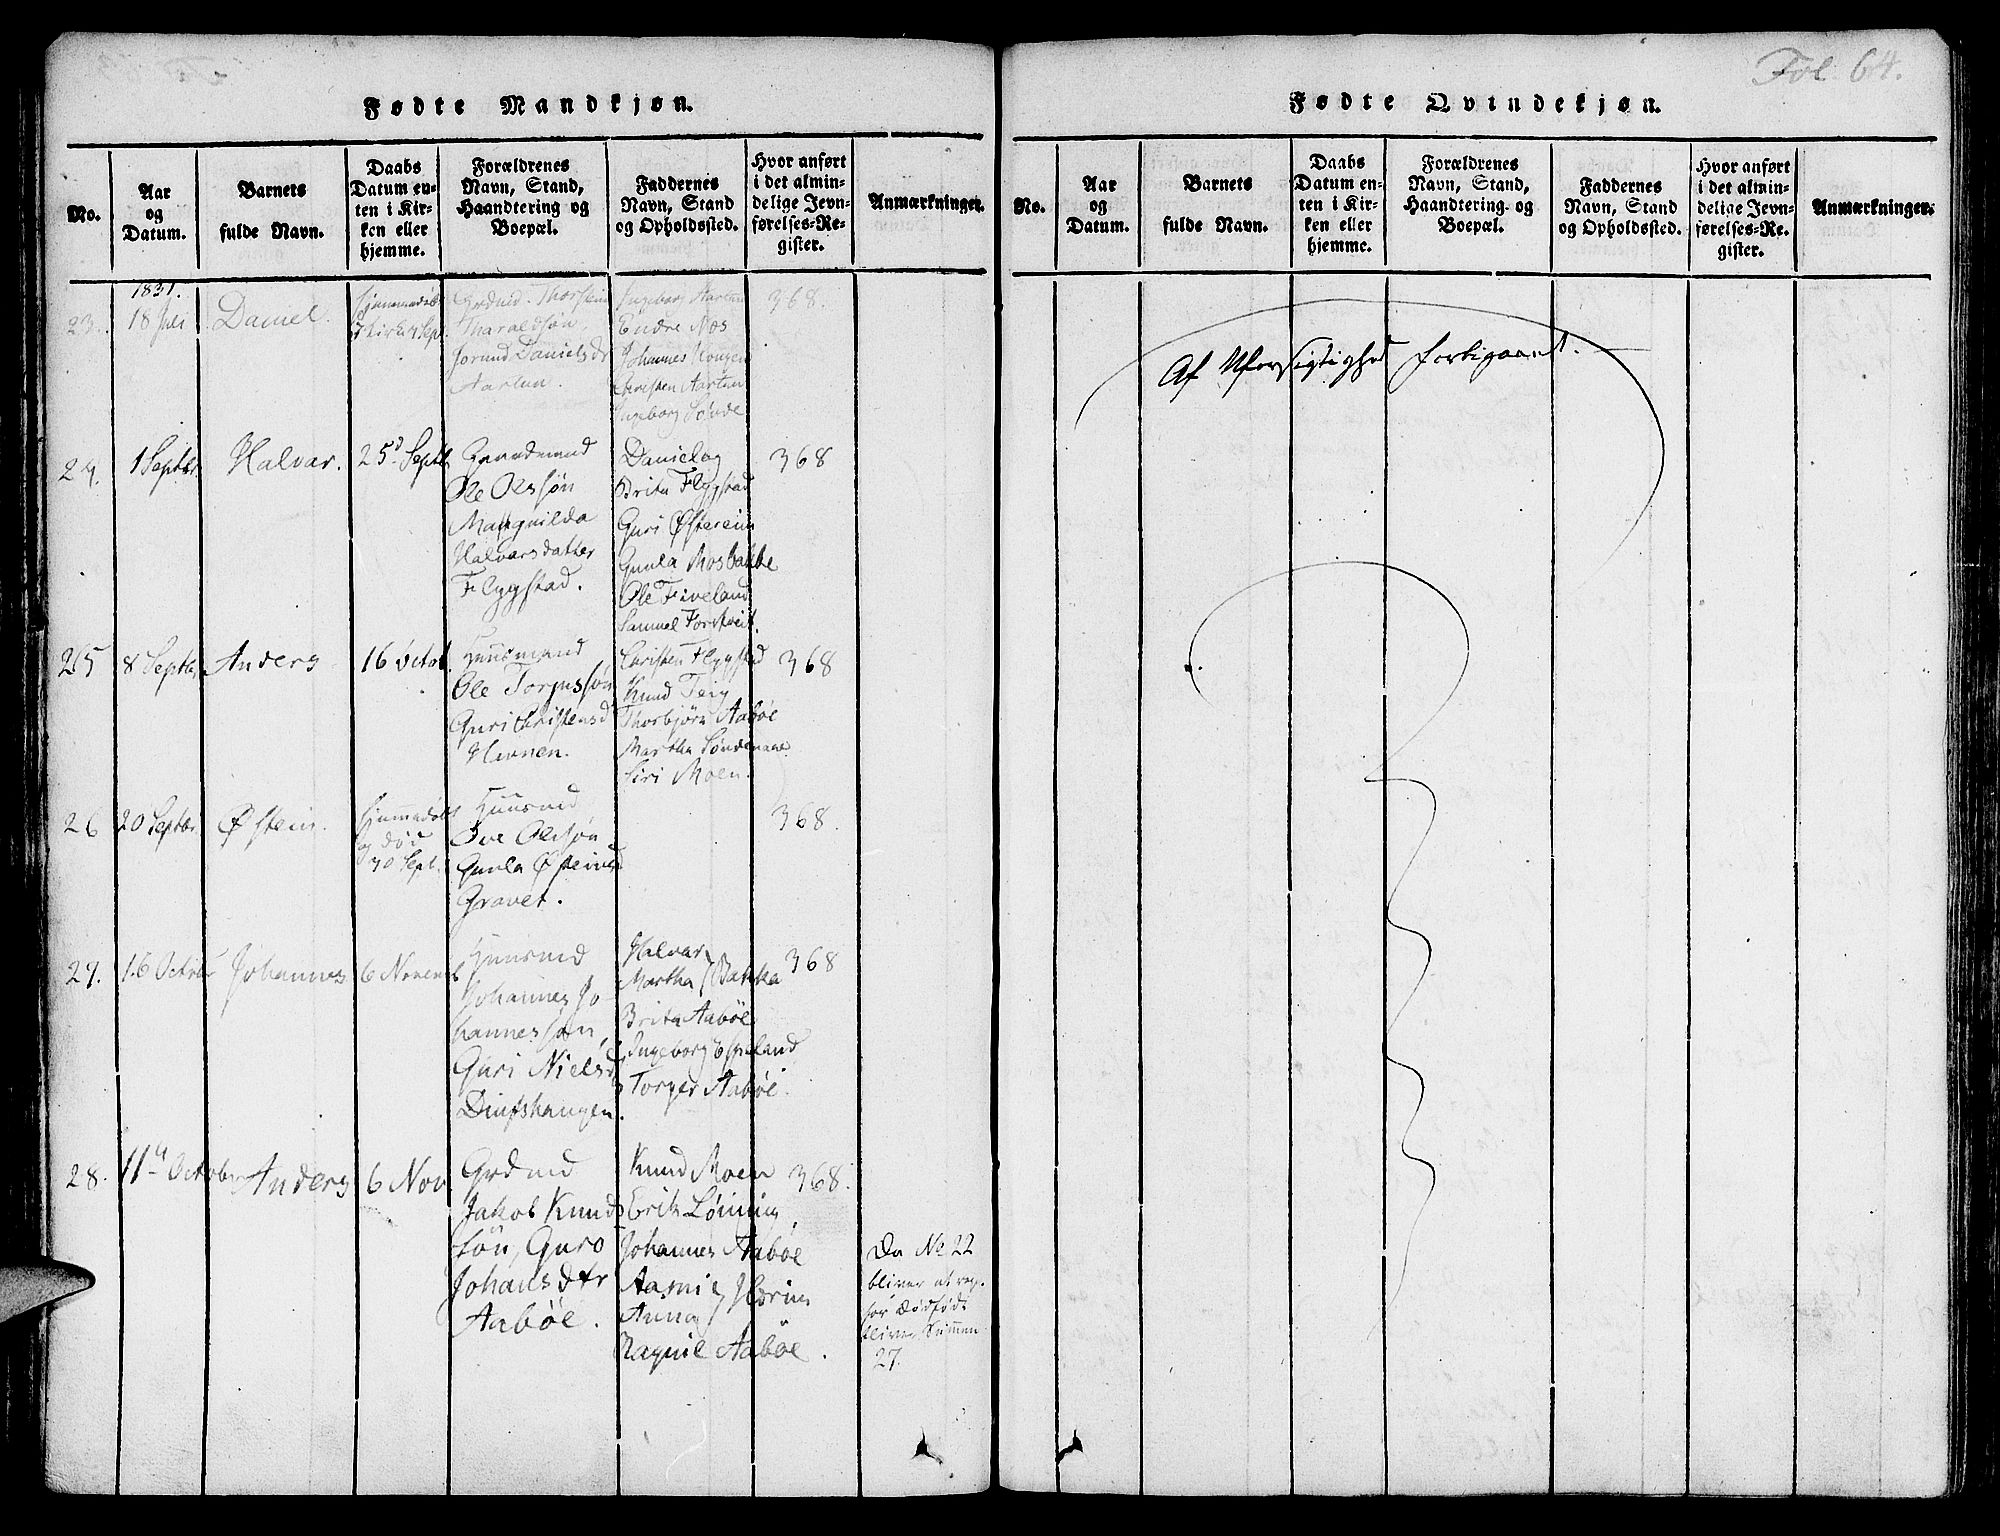 Fol 64.
Fødte Mandkjøn.
No.
Aar
og
Datum.
Barnets
fulde Navn.
Daabs
Datum en-
ten i Kir-
ken eller
hjemme.
Forældrenes
Navn, Stand,
Haandtering og
Boepæl.
Faddernes
Navn, Stand
og Opholdssted.
Hvor anført
i det almin-
delige Jevn-
førelses-Re-
gister.
Anmærkninger.
23.
1831.
18 Juli
Daniel.
Kirke 4 Sept
Grdmd. Thorstein
Tharaldsøn,
Jorund Danielsdr
Aartun.
Ingeborg Aartun
Endre Nos
Johannes
Christen Aartun
Ingeborg Sønde
368.
24.
1 Septbr.
Halvar.
25d Septb
Gaardmand
Ole Olssøn
Halvarsdatter
Flygstad.
Daniel og
Brita Flygstad
Guri Østereim
Gunla Mosbakke
Ole Fiveland
Samuel Forstveit.
368
25
8 Septbr
Anders
16 Octob.
Huusmand
Ole Torjussøn
Guri Christensd
Havnen.
Christen Flygstad
Knud Teig
Thorbjørn Aabøe
Martha Søndenaae
Siri Moen.
368
26
20 Septbr
Østein.
og død
30 Sept.
Huusmd
Ive Olssøn
Gunla Østeinsd
Gravet.
368.
27.
16 Octobr
Johannes
6 Novemb
Huusmd
Johannes Jo-
hannessøn,
Guri Nielsd
Halvar
Martha Bakka
Brita Aabøe
Ingeborg Espeland
Torger Aabøe.
368
28.
11te October
Anders
6 Nov
Grdmd
Jakob Knud
søn, Guro
Johansdtr
Aabøe.
Knud Moen
Erik Lønning,
Johannes Aabøe
Anna
Ragnil Aabøe.
368.
Da No 22
bliver at reg.
for dødfødt
bliver Summen
27.
Fødte Qvindekjøn.
No.
Aar
og
Datum.
Barnets
fulde Navn.
Daabs
Datum en-
ten i Kir-
ken eller
hjemme.
Forældrenes
Navn, Stand,
Haandtering og
Boepæl.
Faddernes
Navn, Stand
og Opholdssted.
Hvor anført
i det almin-
delige Jevn-
førelses-Re-
gister.
Anmærkninger.
Af Uforsigtighed forbigaaet.